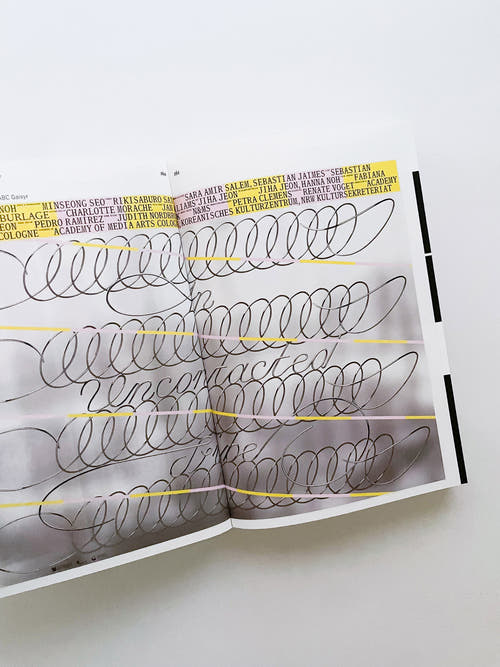 ABC Gaisyr
NOH MINSEONG SEO RIKISABURO
BURLAGE CHARLOTTE MORACHE
EON PEDRO RAMIREZ JUDITH
COLOGNE ACADEMY OF MEDIA ARTS
SARA AMIR SALEM, SEBASTIAN JAIMES SEBASTIAN
JIHA JEON JIHA JEON, HANNA NOH FABIANA
N&MS PETRA CLEMENS RENATE VOGET ACADEMY
KOREANISCHES KULTURZENTRUM, NRW KULTURSEKRETERIAT
in
Uncontacted